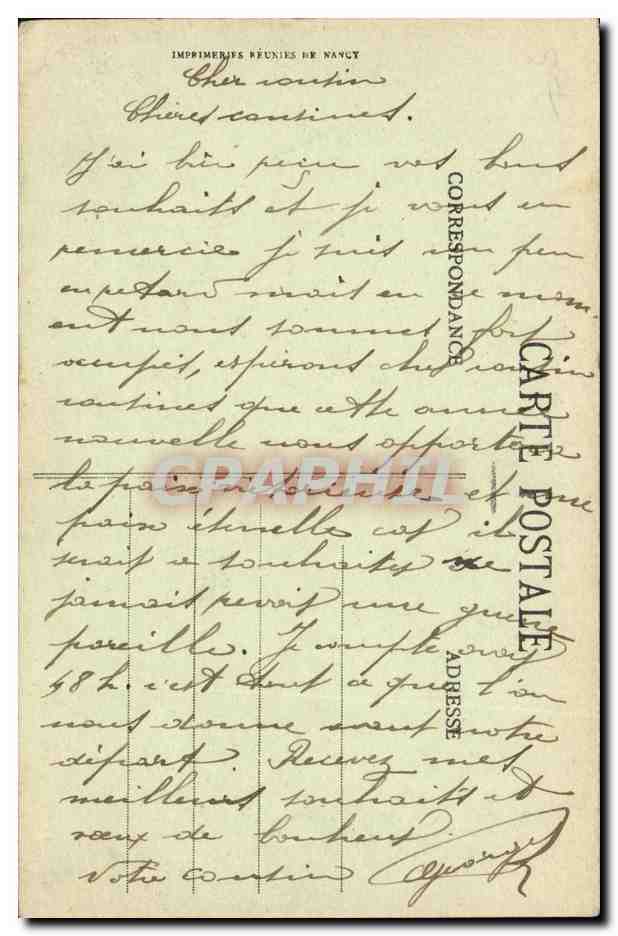 IMPRIMERIES RÉUNIES DE NANCY
Cher cousin
Chères cousines.
J'ai bien reçu vos bons
souhaits et je vous en
remercie je suis un peu
en retard mais en ce mom-
ent nous sommes fort
occupés, espérons cher cousin
cousines que cette année
nouvelle nous apportera
la paix victorieuse et une
paix éternelle car il
serait a souhaiter de
jamais revoir une guerre
pareille. Je compte avoir
48 h. c'est tout ce que l'on
nous donne avant notre
départ. Recevez mes
meilleurs souhaits et
vœux de bonheur.
Votre cousin Georges
CORRESPONDANCE
CARTE POSTALE
ADRESSE
CPAPHIL